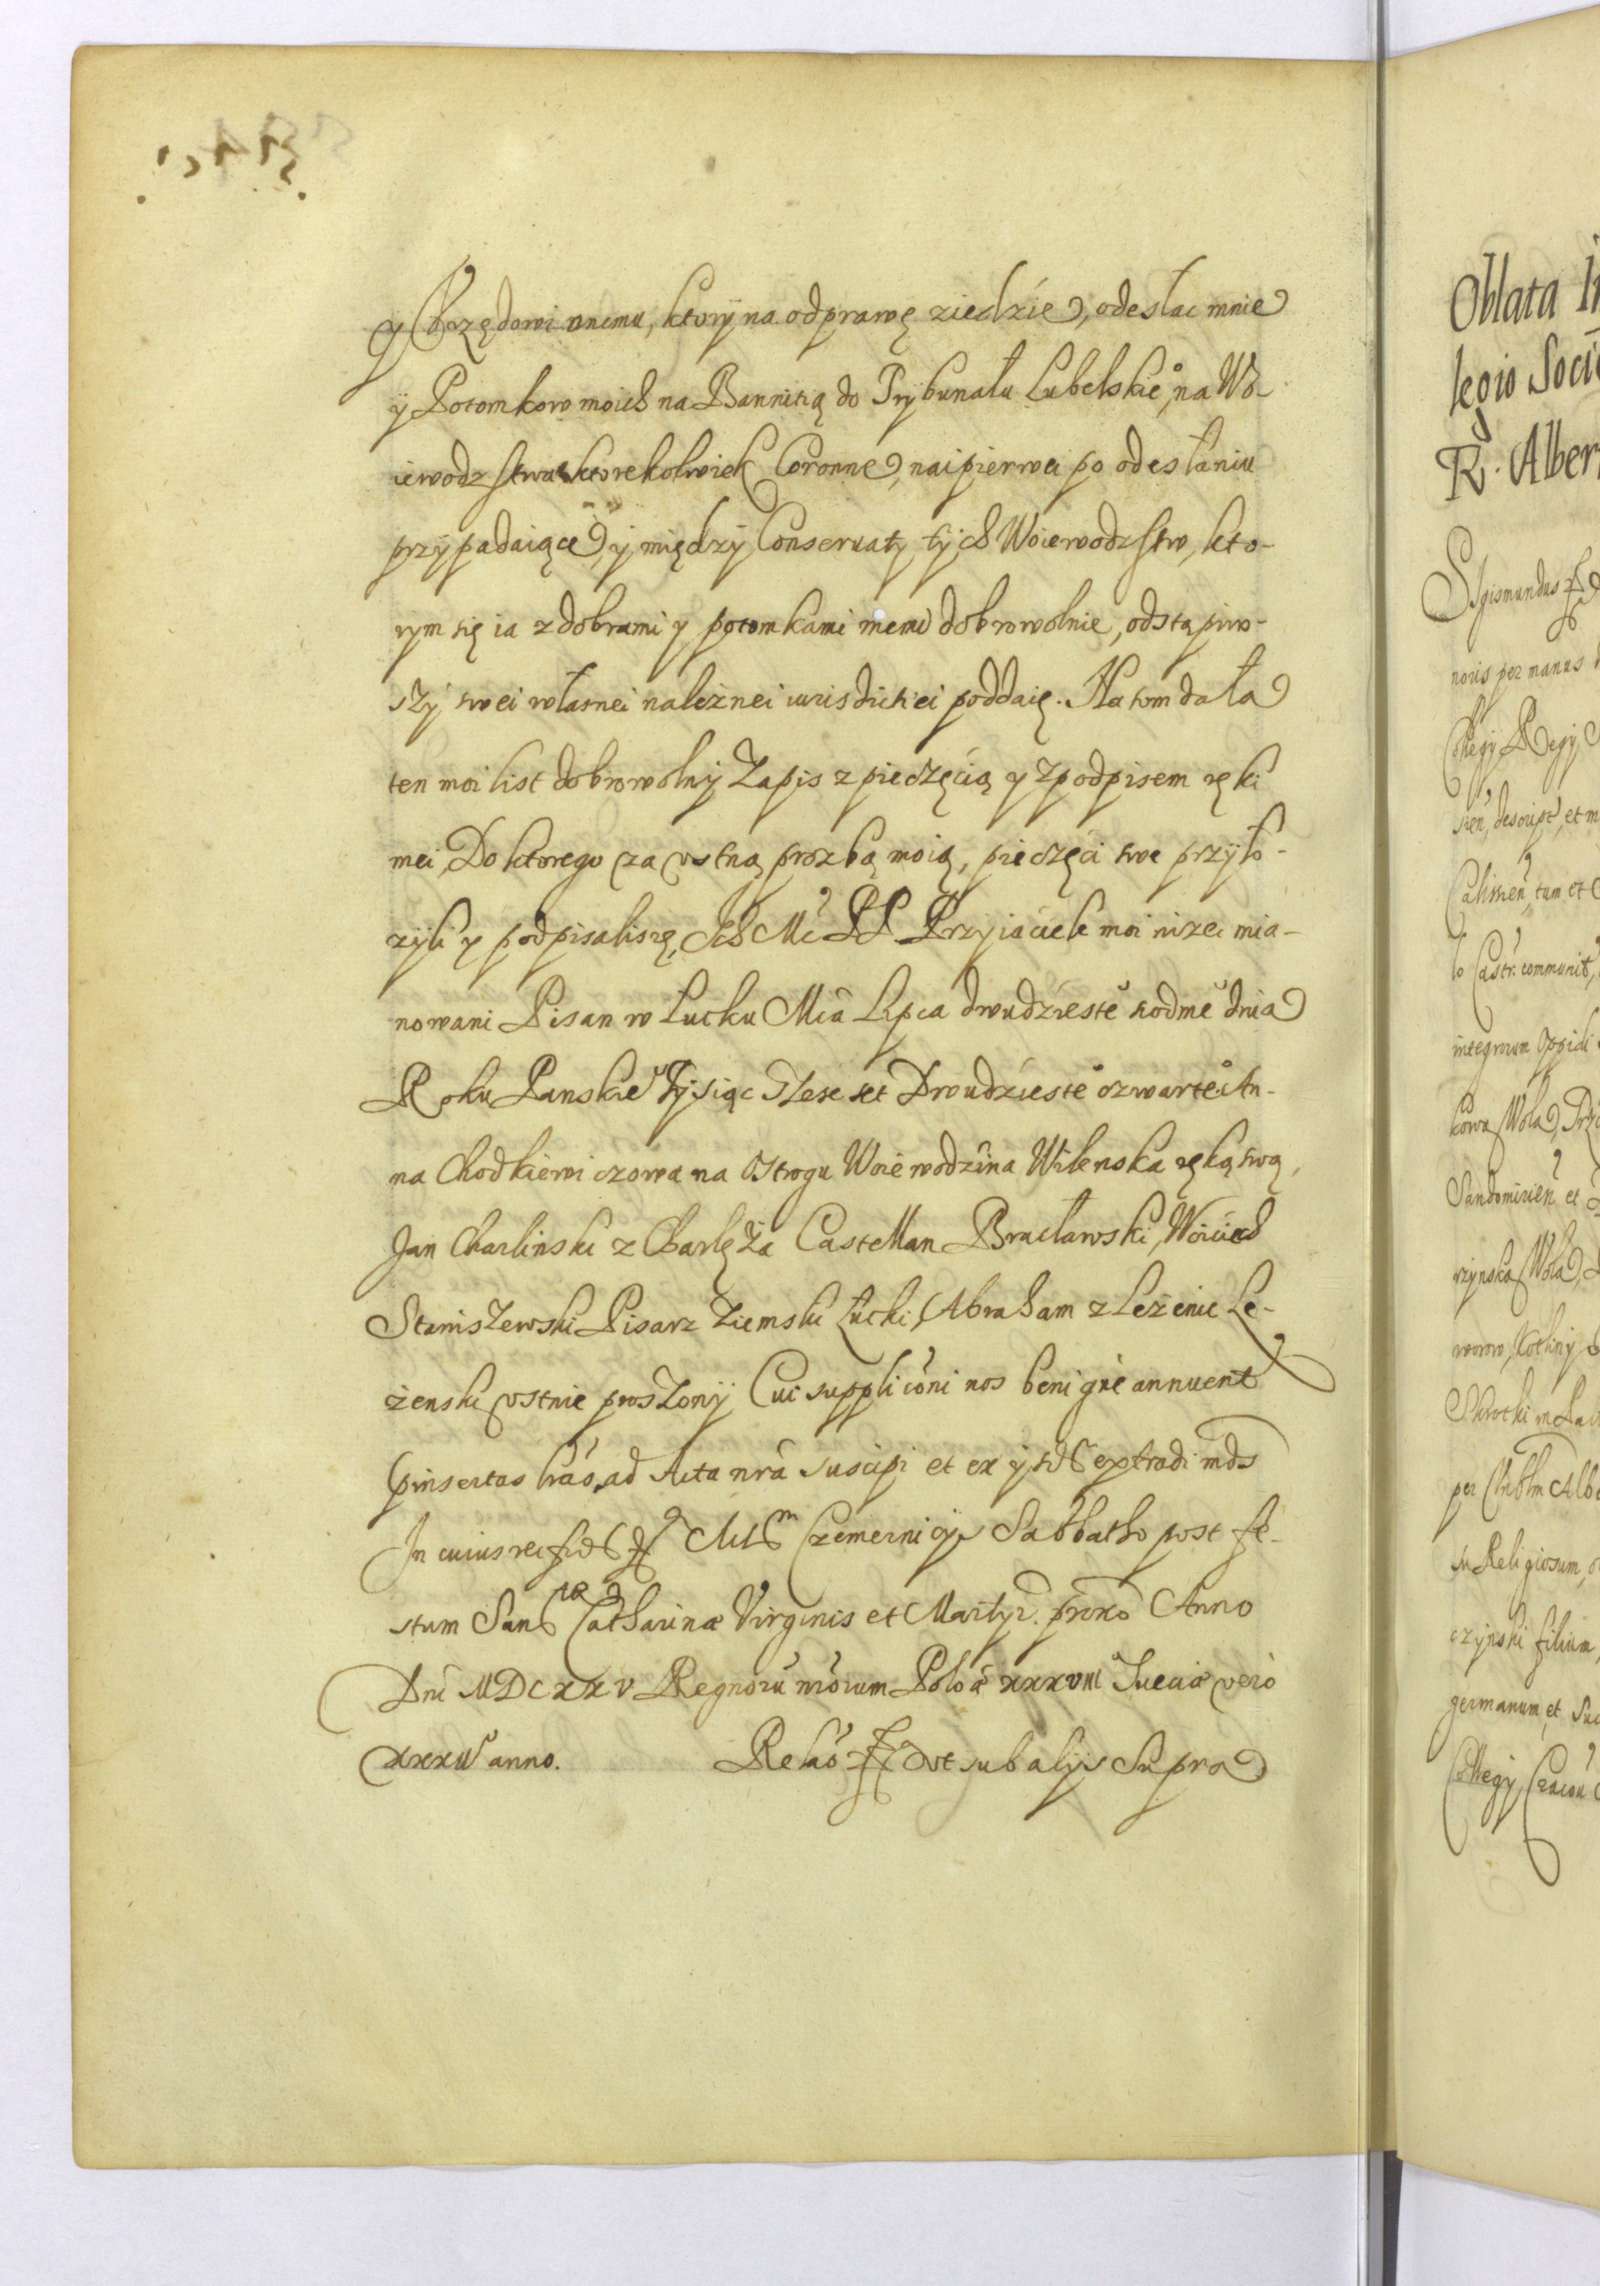 y Vrzędowi onemu, ktory na odprawę ziedzie, odesłac mnie
y Potomkow moich na Bannitią do Trybunału Lubelskie° na Wo-
iewodzstwa ktorekolwiek Coronne, naipierwei po odesłaniu
przypadaiące, y między Conseruaty tych Woiewodzstw, kto-
rym się ia z dobrami y potomkami memi dobrowolnie, odstąpiw-
szy swei własnei należnei iurisdictiei poddaię. Na tom dała
ten moi list dobrowolny Zapis z pieczęcią y z podpisem ręki
mei, Do ktorego za vstną prozbą moią, pieczęci swe przyło-
zyli y podpisali się, Ich Mć PP Przyiaciele moi nizei mia-
nowani Pisan w Łucku Mca Lipca dwudzieste° siodme° dnia
Roku Panskie° Tysiąc Szesc set Dwudzieste° czwarte° An-
na Chodkiewiczowa na Ostrogu Woiewodzina Wilenska ręką swą,
Jan Charlinski z Charlęża Castellan Bracławski, Woiciech
Staniszewski Pisarz Ziemski Łucki, Abraham z Leżenic Le-
żenski vstnie proszony Cui supplicõni nos benigne annuent
pinsertas lrãs, ad Acta nrã suscipi et ex ysd extradi mds
In cuius rei fid Czemernicys Sabbatho post fe-
stum Sanctæ Catharinæ Virginis et Martyr. prõxo Anno
Dni MDCXXV Regnorũ nrõrum Poloæ XXXVIII Sueciæ vero
XXXII anno. Relaõ vt sub alys Supra
Oblata In
legio Socie
R. Alber
Sigismundus
noris per manus
Collegy Regy
sien, descript, et m
Calissien, tum et
lo Castr. communit,
integrorum Oppidi
kowa Wola,
Sandomirien et
rzynska Wola,
worow, Kotliny
per
su Religiosum,
czynski filium,
germanum, et Suc
Collegy Cracou